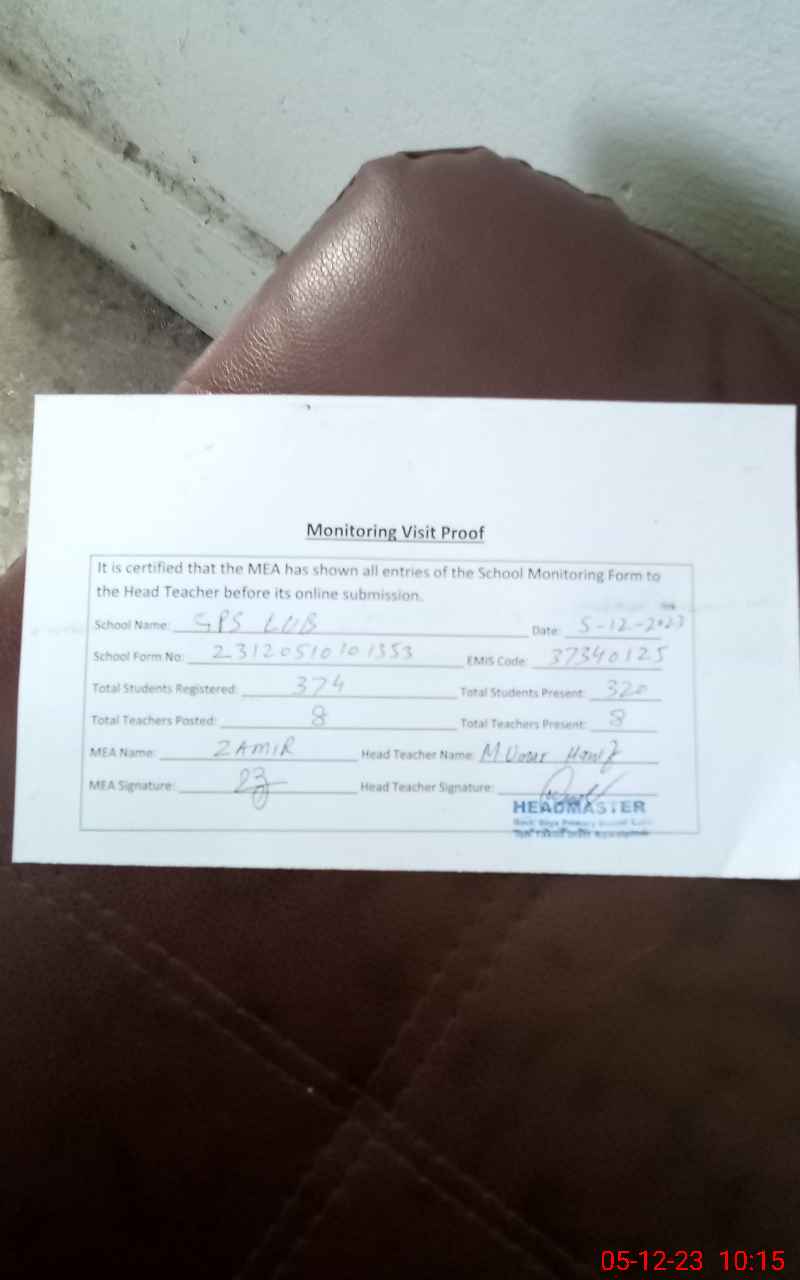 Monitoring Visit Proof
It is certified that the MEA has shown all entries of the School Monitoring Form to
the Head Teacher before its online submission.
School Name: GPS LUB Date: 5-12-2023
School Form No: 23120510101353 EMIS Code: 37340125
Total Students Registered: 374 Total Students Present: 320
Total Teachers Posted: 8 Total Teachers Present: 8
MEA Name: ZAMIR Head Teacher Name: M Umar Hanif
MEA Signature: Head Teacher Signature:
HEADMASTER
05-12-23 10:15